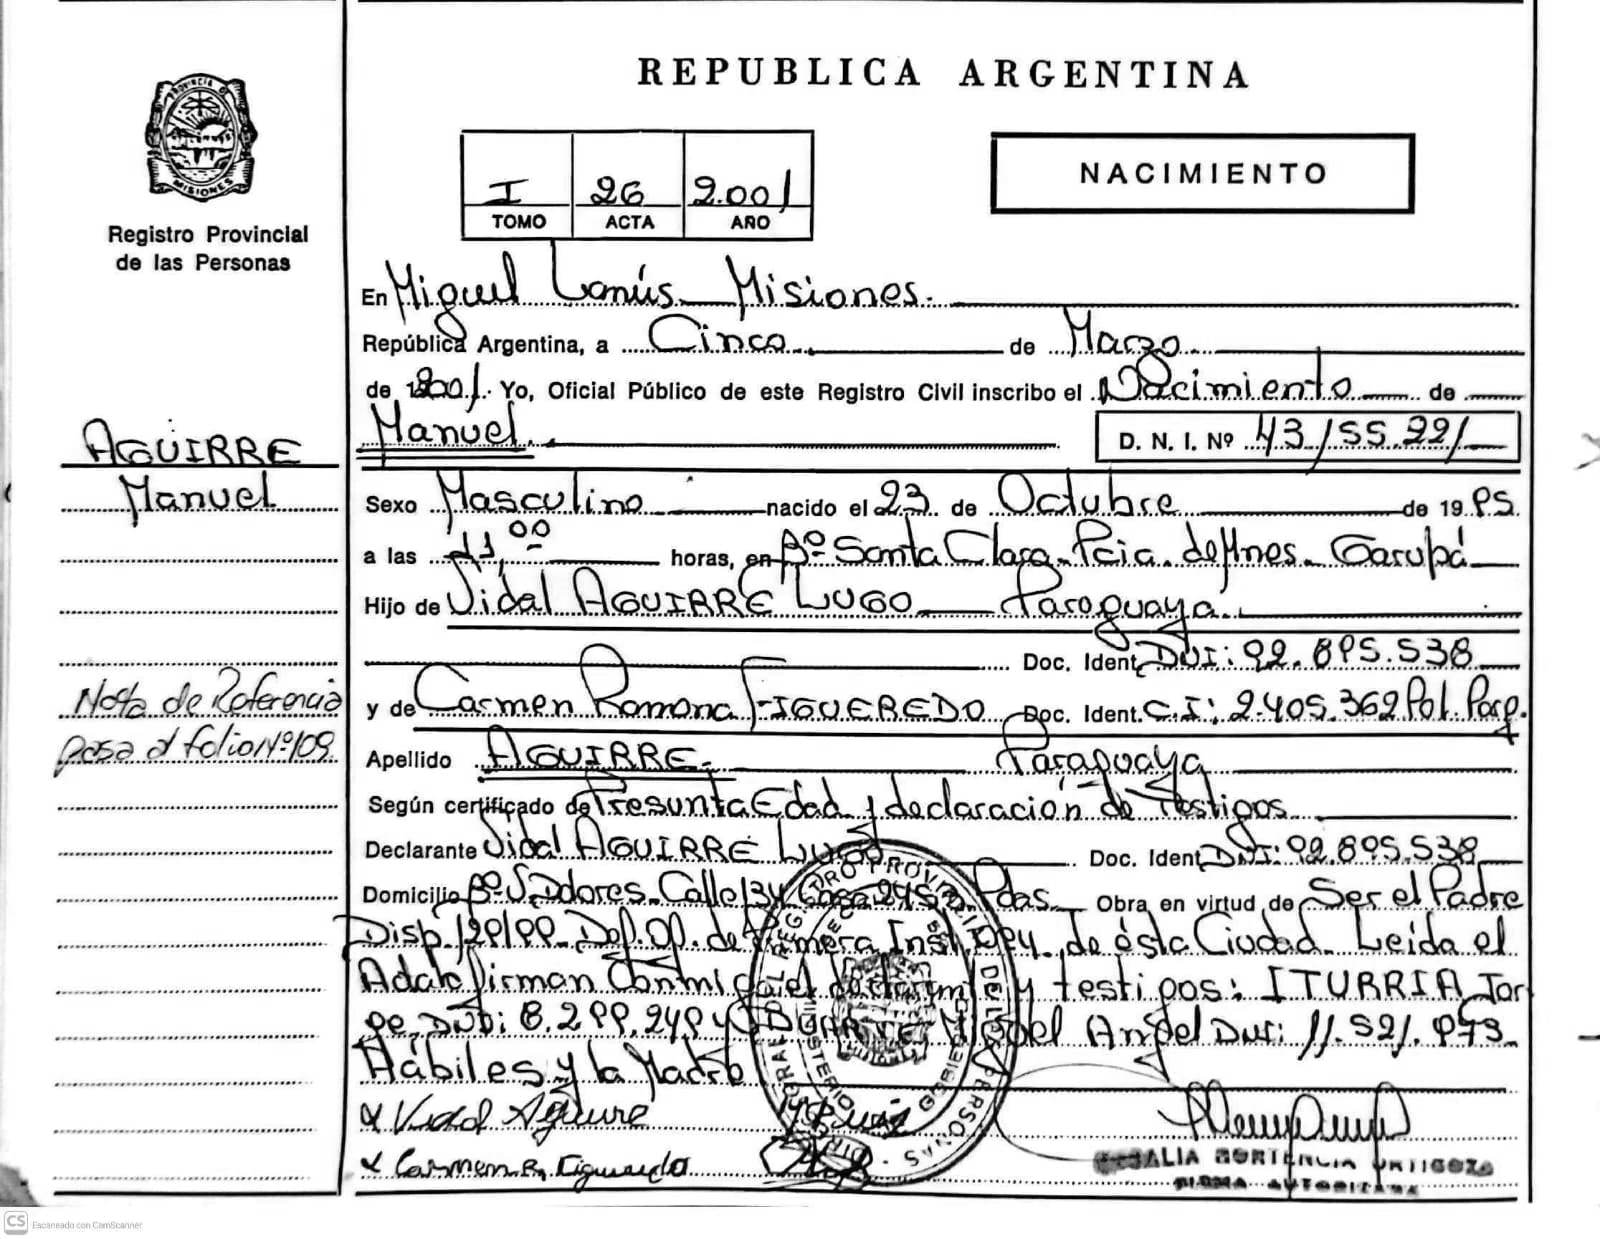 REPUBLICA ARGENTINA
PROVINCIA D MISIONES
Registro Provincial
de las Personas
I 26 2.001
TOMO ACTA AÑO
NACIMIENTO
En Miguel Lanús Misiones.
República Argentina, a Cinco de Marzo
de 2001. Yo, Oficial Público de este Registro Civil inscribo el Nacimiento de
Manuel. D. N. I. Nº 43.155.221
AGUIRRE
Manuel
Sexo Masculino nacido el 23 de Octubre de 19 95.
a las 21,00 horas, en Bº Santa Clara Pcia. de Mnes. Garupá
Hijo de Vidal AGUIRRE LUGO Paraguaya.
Doc. Ident. DNI: 92.895.538
Nota de Referencia
pasa al folio Nº 109.
y de Carmen Ramona FIGUEREDO Doc. Ident. C.I: 2.405.362 Pol. Parg.
Apellido AGUIRRE. Paraguaya
Según certificado de Presunta Edad y declaración de Testigos
Declarante Vidal AGUIRRE LUGO Doc. Ident. DNI: 92.895.538
Domicilio Bº Calle 134 Casa 2455 Pdas. Obra en virtud de Ser el Padre
Disp. 129/99 Def. Of. de Primera Inst. de ésta Ciudad. Leída el
Acta firman conmigo el declarante y testigos: ITURRIA Jor
ge DNI: 8.299.249 y Miguel Angel DNI: 11.521.973
Hábiles y la Madre
x Vidal Aguirre
x Carmen R. Figueredo
DEL REGISTRO PROVINCIAL DE LAS PERSONAS
MINISTERIO GOBIERNO
HORTENCIA ORTIGOZA
FIRMA AUTORIZADA
CS Escaneado con CamScanner